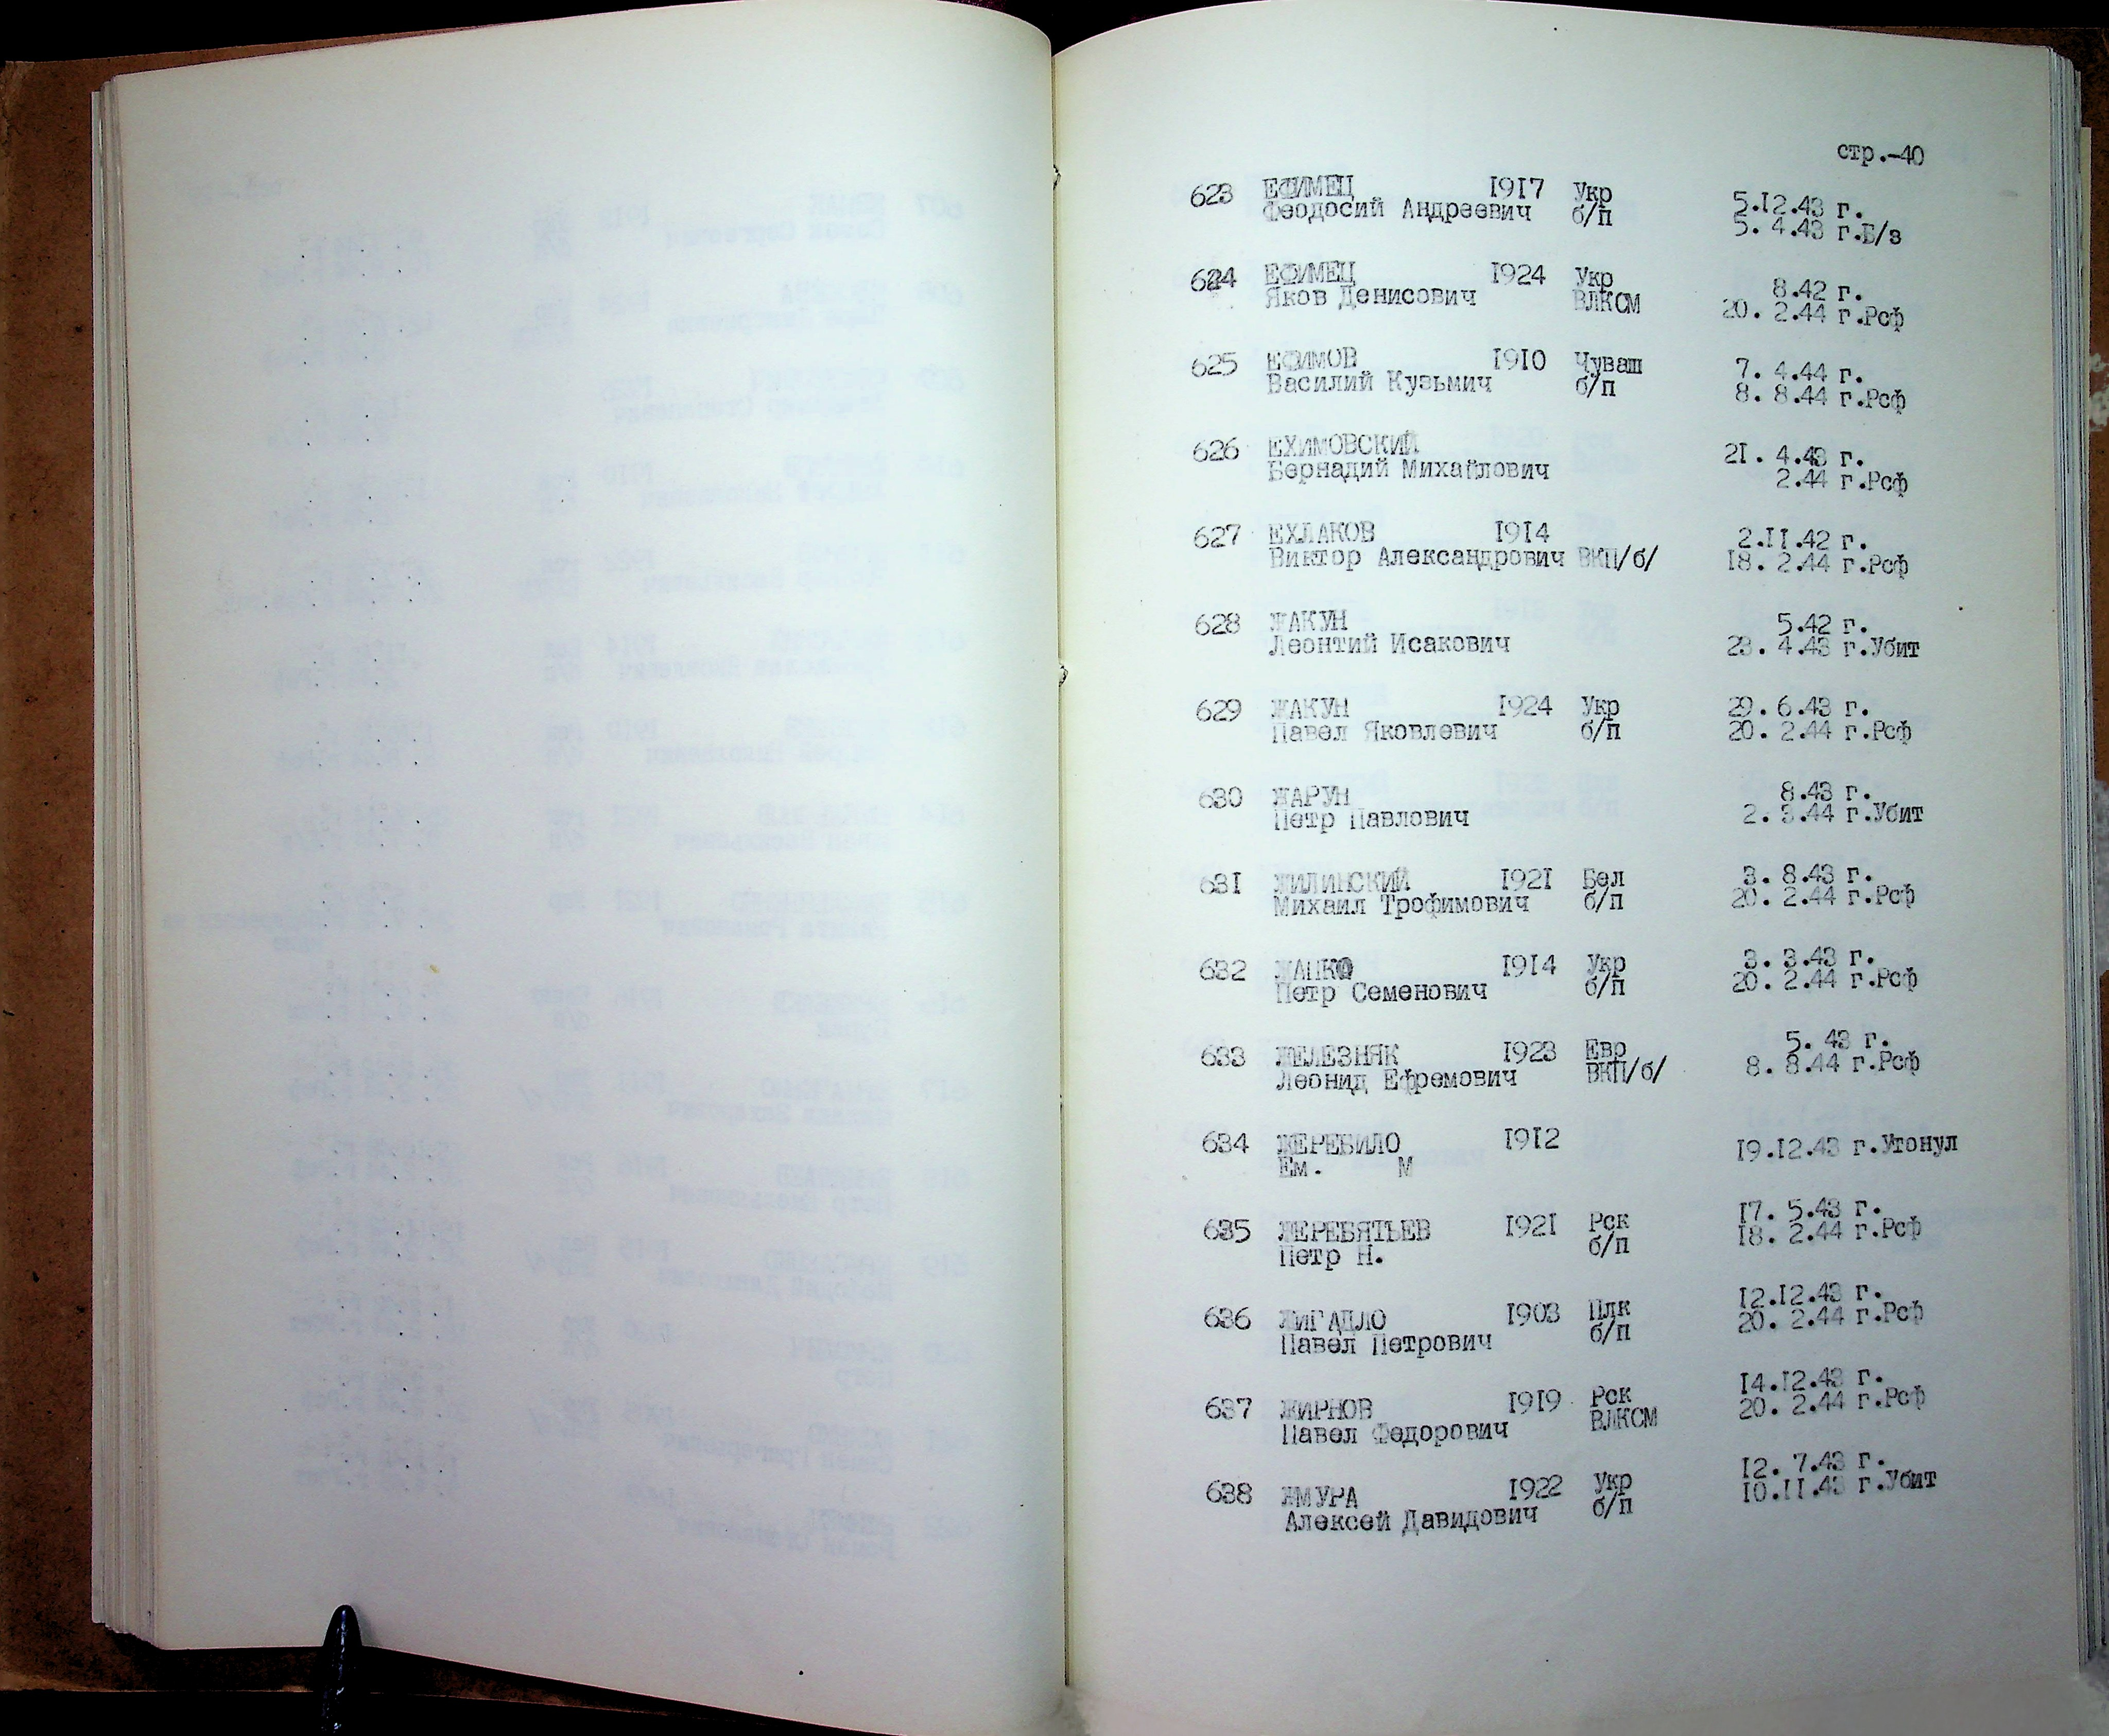 стр.-40
623 ЕФИМЕЦ 1917 Укр 5.12.43 г.
Феодосий Андреевич б/п 5. 4.43 г.Б/з
624 ЕФИМЕЦ 1924 Укр 8.42 г.
Яков Денисович ВЛКСМ 20. 2.44 г.Рсф
625 ЕФИМОВ 1910 Чуваш 7. 4.44 г.
Василий Кузьмич б/п 8. 8.44 г.Рсф
626 ЕХИМОВСКИЙ 21. 4.43 г.
Бернадий Михайлович 2.44 г.Рсф
627 ЕХЛАКОВ 1914 2.11.42 г.
Виктор Александрович ВКП/б/ 18. 2.44 г.Рсф
628 ЖАКУН 5.42 г.
Леонтий Исакович 23. 4.43 г.Убит
629 ЖАКУН 1924 Укр 29. 6.43 г.
Павел Яковлевич б/п 20. 2.44 г.Рсф
630 ЖАРУН 8.43 г.
Петр Павлович 2. 3.44 г.Убит
631 ЖИЛИНСКИЙ 1921 Бел 3. 8.43 г.
Михаил Трофимович б/п 20. 2.44 г.Рсф
632 ЖАПКО 1914 Укр 3. 3.43 г.
Петр Семенович б/п 20. 2.44 г.Рсф
633 ЖЕЛЕЗНЯК 1923 Евр 5. 43 г.
Леонид Ефремович ВКП/б/ 8. 8.44 г.Рсф
634 ЖЕРЕБИЛО 1912 19.12.43 г.Утонул
Ем. М
635 ЖЕРЕБЯТЬЕВ 1921 Рск 17. 5.43 г.
Петр Н. б/п 18. 2.44 г.Рсф
636 ЖИГАДЛО 1903 Плк 12.12.43 г.
Павел Петрович б/п 20. 2.44 г.Рсф
637 ЖИРНОВ 1919 Рск 14.12.43 г.
Павел Федорович ВЛКСМ 20. 2.44 г.Рсф
638 ЖМУРА 1922 Укр 12. 7.43 г.
Алексей Давидович б/п 10.11.43 г.Убит